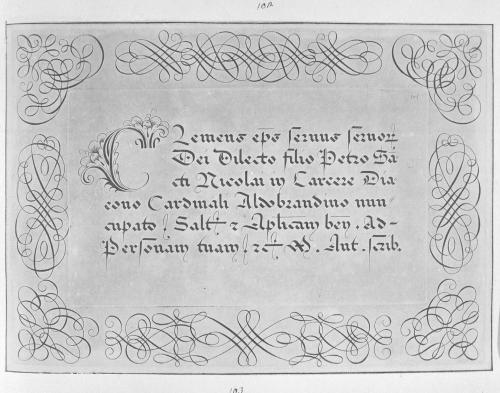 102
Clemens eps servus servor
Dei Dilecto filio Petro Sā
cti Nicolai in Carcere Dia
cono Cardinali Aldobrandino nun
cupato Salt & Aplicam ben. Ad-
Personam tuam &c W. Ant. scrib.
103